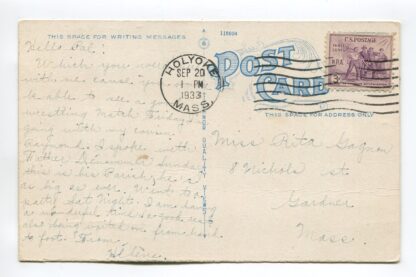 THIS SPACE FOR WRITING MESSAGES
118604
Hello Gal!
Wish you were
with me cause you
be able to see a good
wrestling Match Friday
going with my cousin
Raymond. I spoke with
Father Sunday
this is his Parish, he is
as big as ever. Went to a
party Sat Night. I am having
a wonderful time so good
also being spoiled from head
to foot. From
HOLYOKE
SEP 20
1 PM
1933
MASS.
POST
CARD
U.S. POSTAGE
NRA
3
THIS SPACE FOR ADDRESS ONLY
Miss Rita Gagnon
8 Nichols St.
Gardner
Mass.